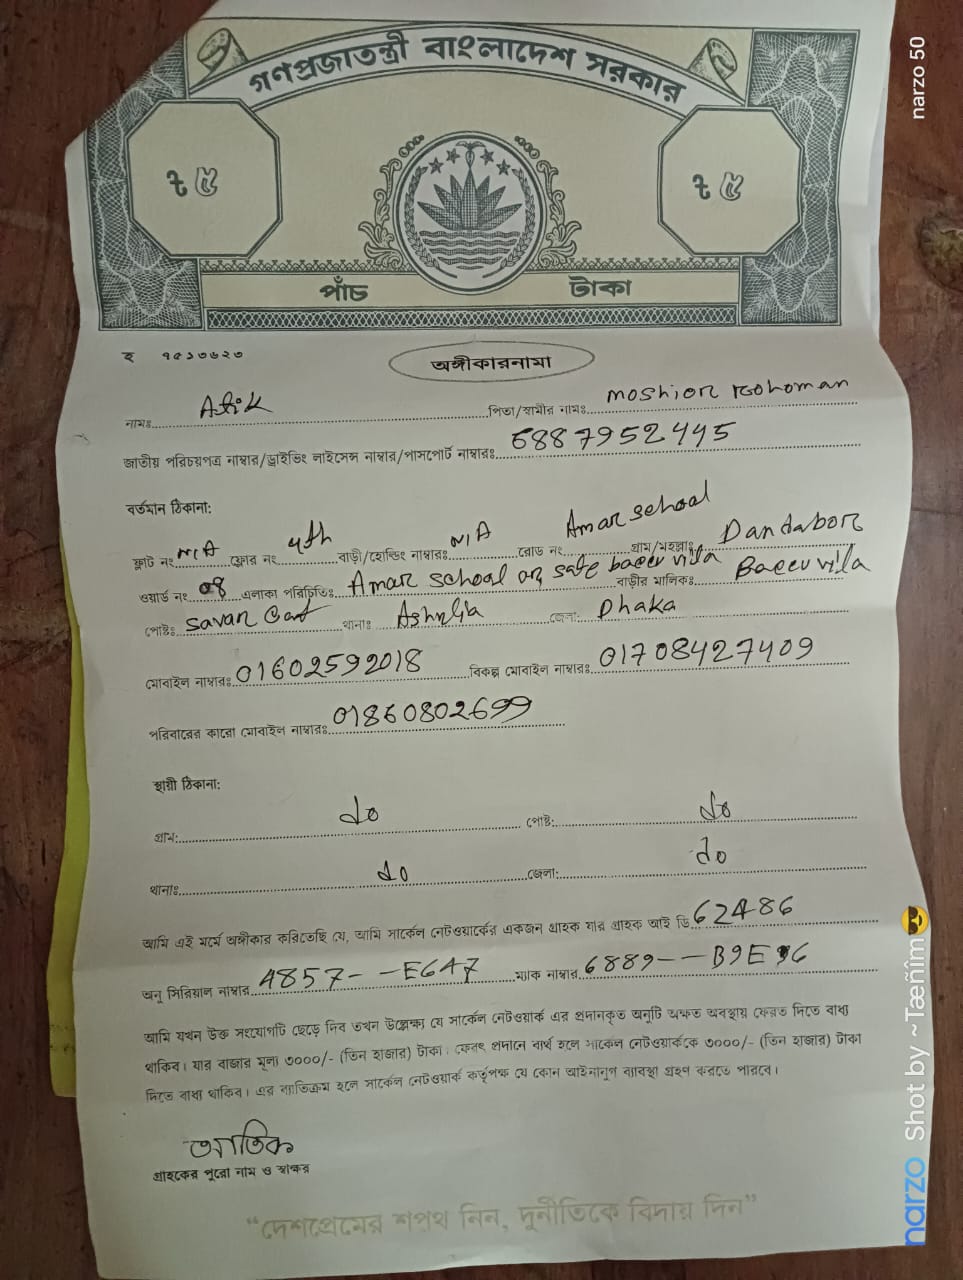 গণপ্রজাতন্ত্রী বাংলাদেশ সরকার
৳ ৫ ৳ ৫
পাঁচ টাকা
অঙ্গীকারনামা
নামঃ Atik পিতা/স্বামীর নামঃ moshior Rohoman
জাতীয় পরিচয়পত্র নাম্বার/ড্রাইভিং লাইসেন্স নাম্বার/পাসপোর্ট নাম্বারঃ 6887952445
বর্তমান ঠিকানা:
ফ্লাট নং N/A ফ্লোর নং 4th বাড়ী/হোল্ডিং নাম্বারঃ N/A রোড নং Amar school গ্রাম/মহল্লাঃ Dandabor
ওয়ার্ড নং 08 এলাকা পরিচিতিঃ Amar school বাড়ীর মালিকঃ
পোষ্টঃ savar Cant থানাঃ Ashulia জেলা: Dhaka
মোবাইল নাম্বারঃ 01602592018 বিকল্প মোবাইল নাম্বারঃ 01708427409
পরিবারের কারো মোবাইল নাম্বারঃ 01860802699
স্থায়ী ঠিকানা:
গ্রাম: do পোষ্ট: do
থানাঃ do জেলা: do
আমি এই মর্মে অঙ্গীকার করিতেছি যে, আমি সার্কেল নেটওয়ার্কের একজন গ্রাহক যার গ্রাহক আই ডি 62486
অনু সিরিয়াল নাম্বার 4857--E647 ম্যাক নাম্বার 6889--B9E96
আমি যখন উক্ত সংযোগটি ছেড়ে দিব তখন উল্লেক্ষ্য যে সার্কেল নেটওয়ার্ক এর প্রদানকৃত অনুটি অক্ষত অবস্থায় ফেরত দিতে বাধ্য
থাকিব। যার বাজার মূল্য ৩০০০/- (তিন হাজার) টাকা। ফেরৎ প্রদানে ব্যর্থ হলে সার্কেল নেটওয়ার্ককে ৩০০০/- (তিন হাজার) টাকা
দিতে বাধ্য থাকিব। এর ব্যতিক্রম হলে সার্কেল নেটওয়ার্ক কর্তৃপক্ষ যে কোন আইনানুগ ব্যবস্থা গ্রহণ করতে পারবে।
আতিক
গ্রাহকের পুরো নাম ও স্বাক্ষর
“দেশপ্রেমের শপথ নিন, দুর্নীতিকে বিদায় দিন”
narzo 50
narzo Shot by ~Tæñîm😎